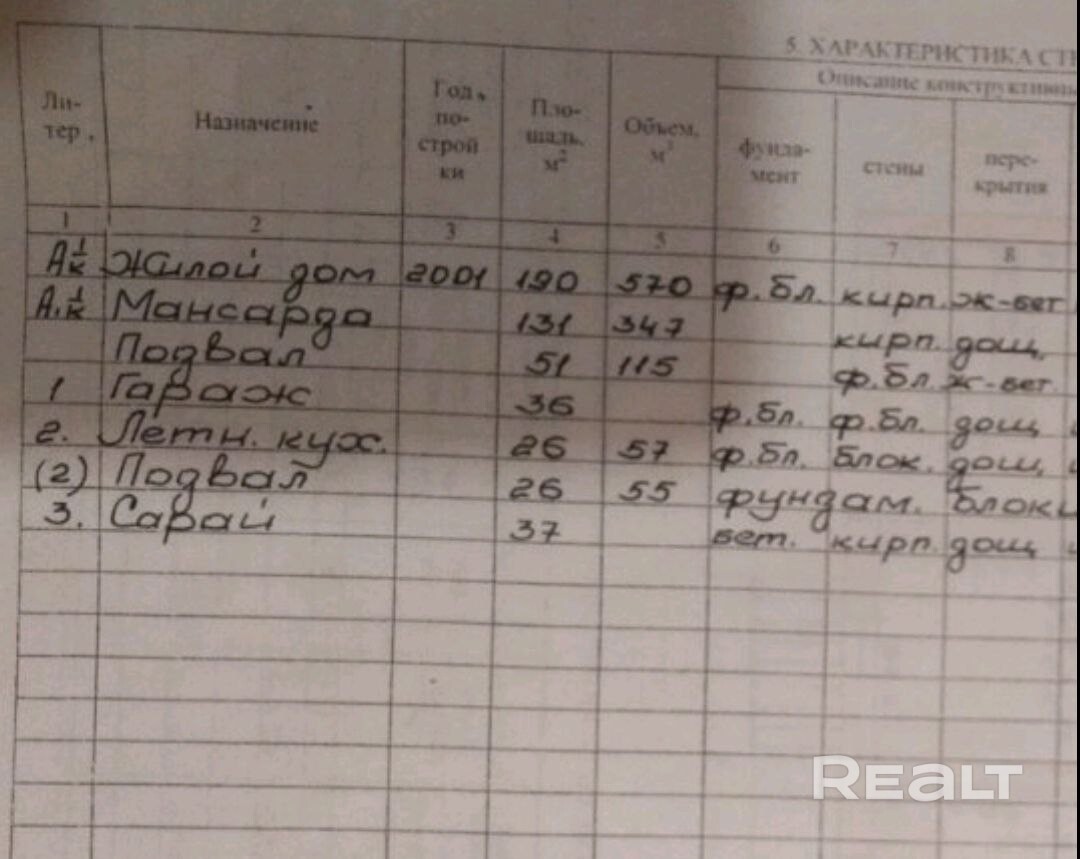 5. ХАРАКТЕРИСТИКА
Описание
Ли-
тер,
Назначение
Год
по-
строй
ки
Пло-
щадь,
м²
Объем,
м³
фунда-
мент
стены
пере-
крытия
1 2 3 4 5 6 7 8
А 1/к Жилой дом 2001 190 570 ф.бл. кирп. ж-бет
А₁ 1/к Мансарда 131 347 кирп. дощ.
Подвал 51 115 ф.бл. ж-бет.
1 Гараж 36 ф.бл. ф.бл. дощ
2. Летн. кух. 26 57 ф.бл. блок. дощ,
(2) Подвал 26 55 фундам. блоки
3. Сарай 37 бет. кирп. дощ
REALT